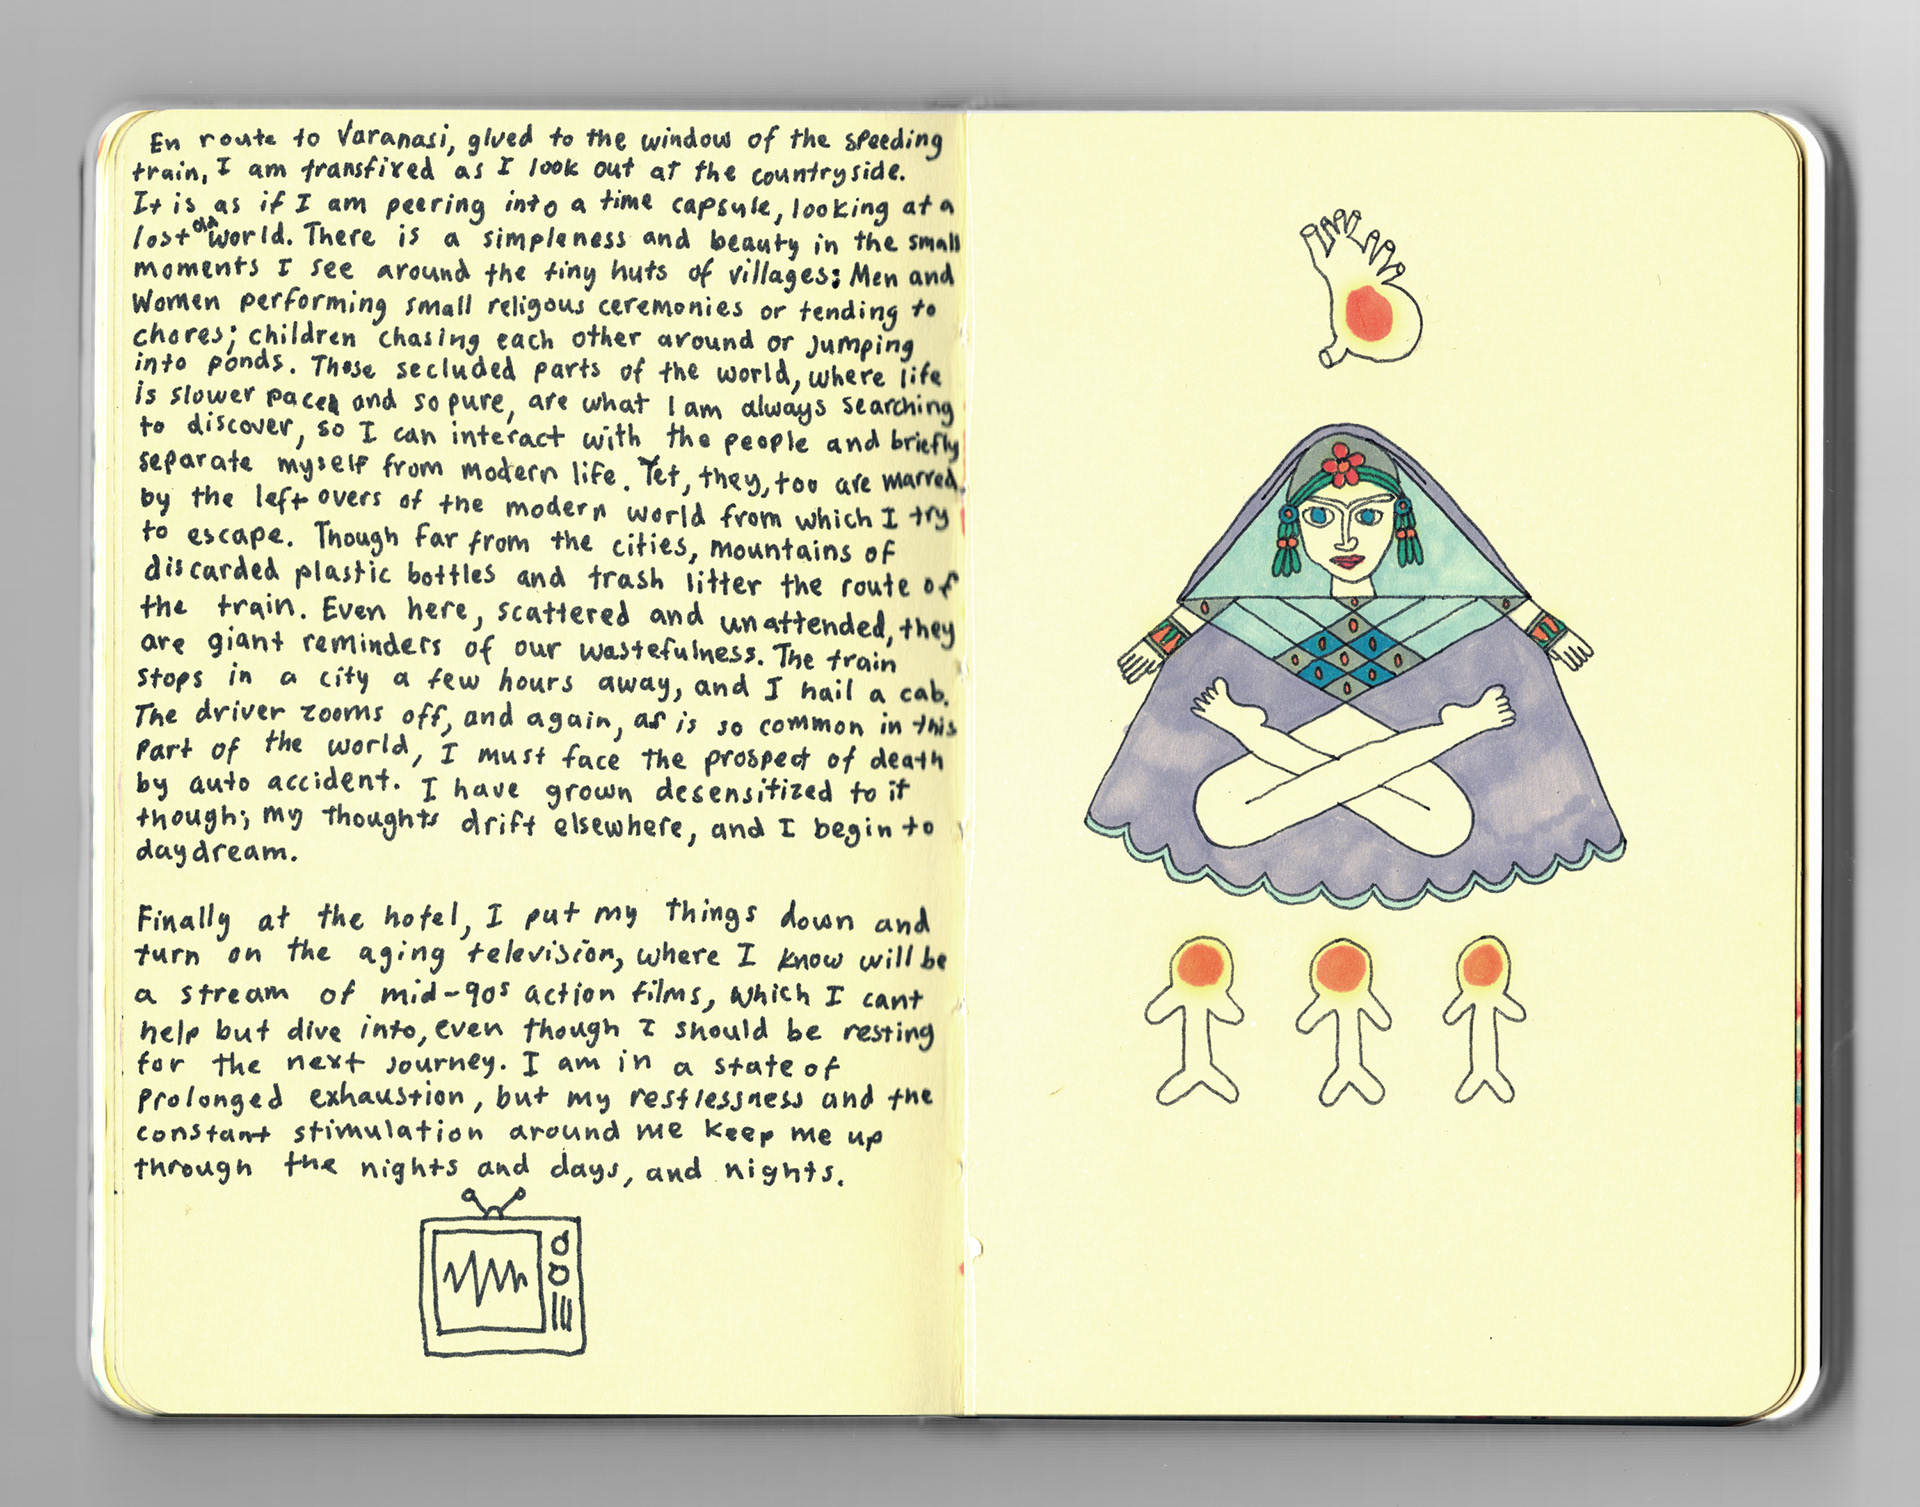 En route to Varanasi, glued to the window of the speeding
train, I am transfixed as I look out at the countryside.
It is as if I am peering into a time capsule, looking at a
lost old world. There is a simpleness and beauty in the small
moments I see around the tiny huts of villages: Men and
Women performing small religous ceremonies or tending to
chores; children chasing each other around or jumping
into ponds. These secluded parts of the world, where life
is slower paced and so pure, are what I am always searching
to discover, so I can interact with the people and briefly
separate myself from modern life. Yet, they, too are marred
by the left overs of the modern world from which I try
to escape. Though far from the cities, mountains of
discarded plastic bottles and trash litter the route of
the train. Even here, scattered and unattended, they
are giant reminders of our wastefulness. The train
stops in a city a few hours away, and I hail a cab.
The driver zooms off, and again, as is so common in this
part of the world, I must face the prospect of death
by auto accident. I have grown desensitized to it
though; my thoughts drift elsewhere, and I begin to
daydream.
Finally at the hotel, I put my things down and
turn on the aging television, where I know will be
a stream of mid-90s action films, which I cant
help but dive into, even though I should be resting
for the next journey. I am in a state of
prolonged exhaustion, but my restlessness and the
constant stimulation around me keep me up
through the nights and days, and nights.